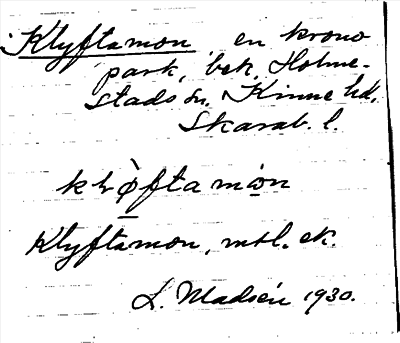 Klyftamon, en krono
park, bek. Holme-
stads sn. Kinne hd.
Skarab. l.
klø̄ftamo̤n
Klyftamon, mtl. ek.
L. Madsén 1930.